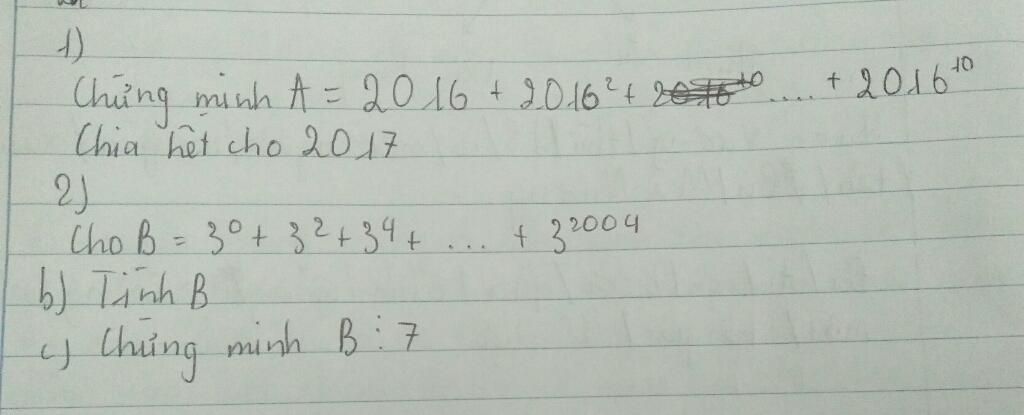 1)
Chứng minh A = 2016 + 2016² + .... + 2016¹⁰
Chia hết cho 2017
2)
Cho B = 3⁰ + 3² + 3⁴ + ... + 3²⁰⁰⁴
b) Tính B
c) Chứng minh B ⋮ 7